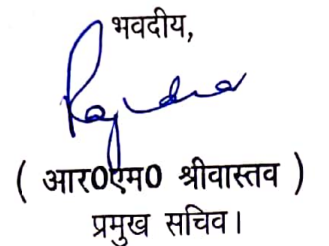 भवदीय,
( आर0एम0 श्रीवास्तव )
प्रमुख सचिव।